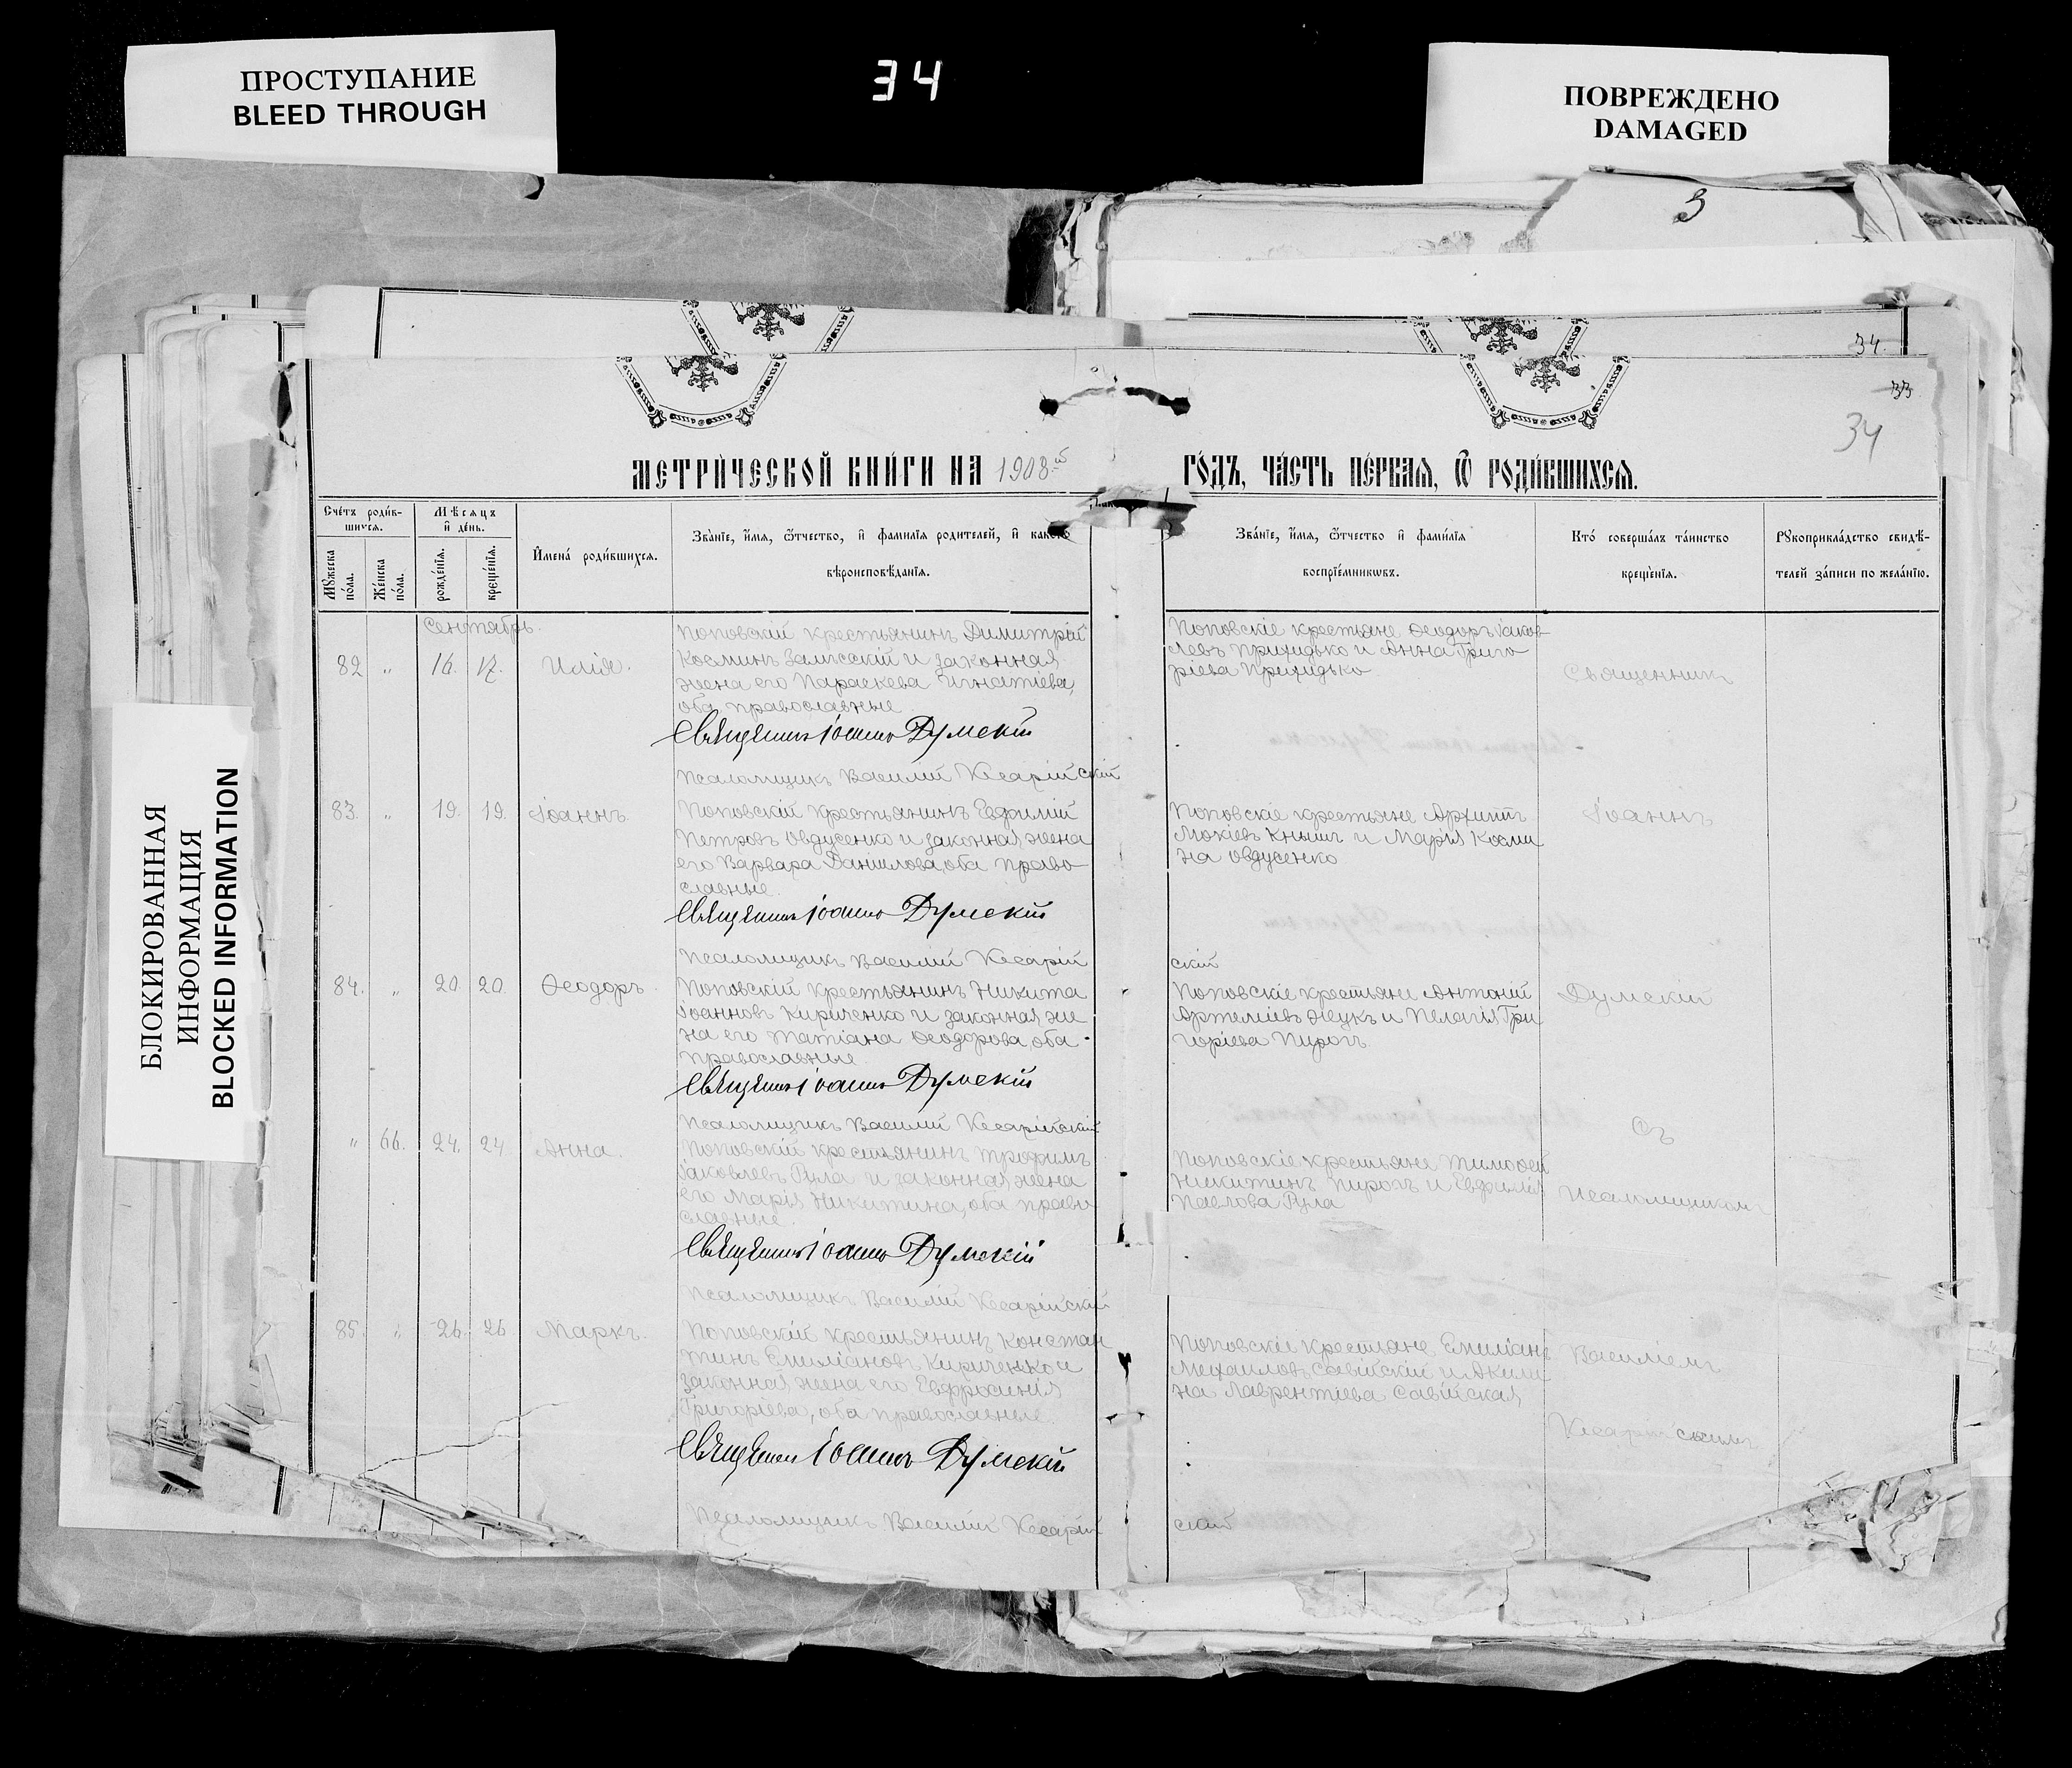 ПРОСТУПАНИЕ
BLEED THROUGH
34
ПОВРЕЖДЕНО
DAMAGED
3
34.
33.
34
БЛОКИРОВАННАЯ
ИНФОРМАЦИЯ
BLOCKED INFORMATION
МЕТРИ́ЧЕСКОЙ КНИ́ГИ НА 1908-й ГО́ДЪ, ЧА́СТЬ ПЕ́РВАЯ, Ѡ РОДИ́ВШИХСЯ.
Сче́тъ роди́в-
шихся.
Мѣсяцъ
и де́нь.
Му́жеска
по́ла.
Же́нска
по́ла.
рожде́нія.
креще́нія.
Имена́ роди́вшихся.
Зва́нїе, и́мя, ѻ́тчество, и фами́лїя родителей, и како́го
вѣроисповѣ́данїя.
Зва́нїе, и́мя, ѻ́тчество и фами́лїя
воспрїе́мникѡвъ.
Кто́ соверша́лъ та́инство
креще́нїя.
Рꙋкоприкла́дство свидѣ́-
телей за́писи по жела́нїю.
Сентябрь.
82 " 16. 17. Илія.
Поповскій крестьянинъ Димитрій
Косминъ Замсскій и законная
жена его Параскева Игнатіева,
оба православные.
Священникъ Іоаннъ Думскій
Псаломщикъ Василій Кесарійскій
Поповскіе крестьяне Ѳеодоръ Іаков-
левъ Приходько и Анна Григо-
ріева Приходько
Священникъ
83. " 19. 19. Іоаннъ.
Поповскій крестьянинъ Евфимій
Петровъ Овдусенко и законная жена
его Варвара Даніилова, оба право-
славные.
Священникъ Іоаннъ Думскій
Псаломщикъ Василій Кесарій
скій
Поповскіе крестьяне Архиппъ
Мокіевъ Кнышъ и Марія Косми
на Овдусенко
Іоаннъ
84. " 20. 20. Ѳеодоръ.
Поповскій крестьянинъ Никита
Іоанновъ Кириченко и законная же
на его Татіана Ѳеодорова, оба
православные.
Священникъ Іоаннъ Думскій
Псаломщикъ Василій Кесарійскій
Поповскіе крестьяне Антоній
Артеміевъ и Пелагія Гри
горіева Пирогъ.
Думскій
" 66. 24. 24 Анна.
Поповскій крестьянинъ Трофимъ
Іаковлевъ Рула и законная жена
его Марія Никитина, оба право
славные.
Священникъ Іоаннъ Думскій
Псаломщикъ Василій Кесарійскій
Поповскіе крестьяне Тимоѳей
Никитинъ Пирогъ и Евфимія
Павлова Рула
Съ
Псаломщикомъ
85. " 26. 26 Маркъ.
Поповскій крестьянинъ Констан
тинъ Емиліановъ Кириченко и
законная жена его Евфросинія
Григоріева, оба православные.
Священникъ Іоаннъ Думскій
Псаломщикъ Василій Кесарій
скій
Поповскіе крестьяне Емиліанъ
Михаиловъ Савійскій и Акили
на Лаврентіева Савійская
Василіемъ
Кесарійскимъ